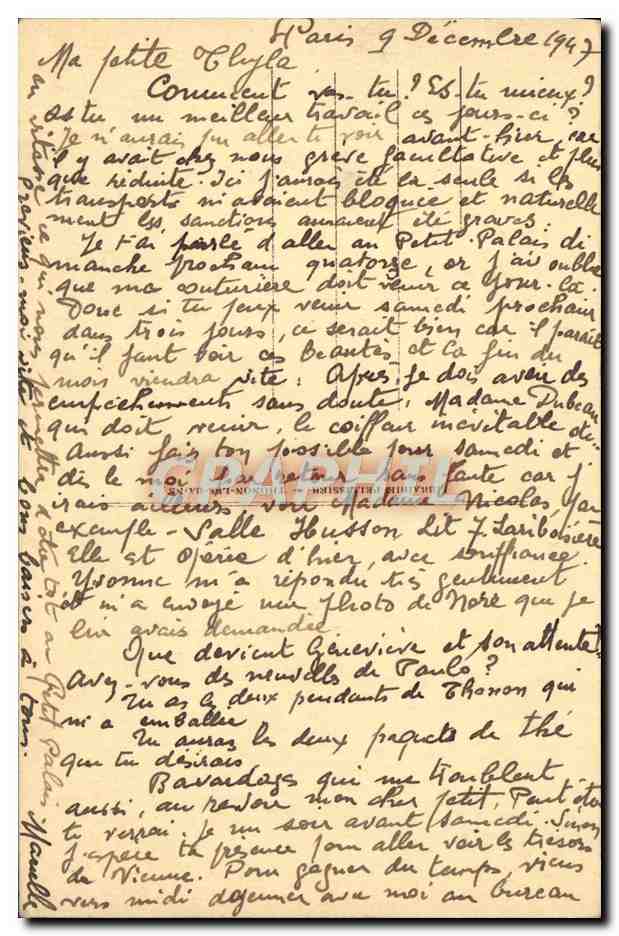 Paris 9 Décembre 1947
Ma petite Thyla
Comment vas-tu? Es-tu mieux?
as tu un meilleur travail ces jours-ci?
Je n'aurais pu aller te voir avant-hier, car
il y avait chez nous grève facultative et plus
que réduite. Ici j'aurais été la seule si les
transports n'avaient bloquée et naturelle
ment les sanctions auraient été graves.
Je t'ai parlé d'aller au Petit-Palais di
manche prochain quatorze, or j'ai oublié
que ma couturière doit venir ce jour-là.
Donc si tu peux venir samedi prochain
dans trois jours, ce serait bien car il paraît
qu'il faut voir ces beautés et la fin du
mois viendra vite: Après, je dois avoir des
empêchements sans doute, Madame Dubeau
qui doit venir, le coiffeur inévitable etc.
Aussi fais ton possible pour samedi et
dis le moi par retour sans faute car j'
irais ailleurs voir Madame Nicolas, par
exemple - Salle Husson Lit 7. Lariboisière
Elle est opérée d'hier, avec souffrance.
Yvonne m'a répondu très gentiment
et m'a envoyé une photo de Nore que je
lui avais demandée
Que devient Geneviève et son attente?
Avez-vous des nouvelles de Paulo?
Tu as les deux pendants de Thonon qui
m'a emballée
Tu auras les deux paquets de thé
que tu désirais
Bavardages qui me troublent
aussi, au revoir mon cher petit, Peut être
te verrai-je un soir avant samedi. Sinon
j'espère ta présence pour aller voir les trésors
de Vienne. Pour gagner du temps, viens
vers midi déjeuner avec moi au bureau
en vitesse ce qui nous permettra d'être tôt au Petit Palais.
moi vite et bons baisers à tous.
CPAPHIL
THONON-LES-BAINS